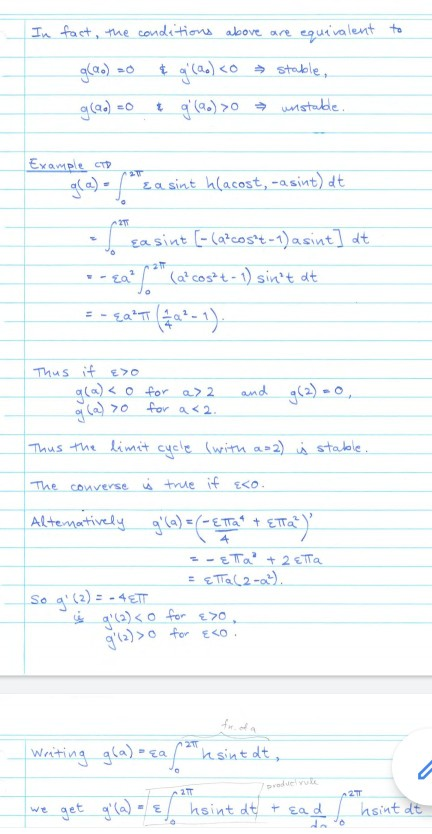 In fact, the conditions above are equivalent to
g(a₀) = 0 & g'(a₀) < 0 ⇒ stable,
g(a₀) = 0 & g'(a₀) > 0 ⇒ unstable.
Example CTD
g(a) = ∫₀^2π εa sint h(acost, -asint) dt
= ∫₀^2π εa sint [-(a²cos²t-1)asint] dt
= -εa² ∫₀^2π (a²cos²t-1) sin²t dt
= -εa²π (1/4 a² - 1).
Thus if ε>0
g(a) < 0 for a>2 and g(2) = 0,
g(a) >0 for a<2.
Thus the limit cycle (with a=2) is stable.
The converse is true if ε<0.
Alternatively g'(a) = (-επa⁴/4 + επa²)'
= -επa³ + 2επa
= επa(2-a²).
So g'(2) = -4επ
is g'(2) < 0 for ε>0,
g'(2) > 0 for ε<0.
fn. of a
Writing g(a) = εa ∫₀^2π h sint dt,
product rule
we get g'(a) = ε ∫₀^2π h sint dt + εa d/da ∫₀^2π h sint dt